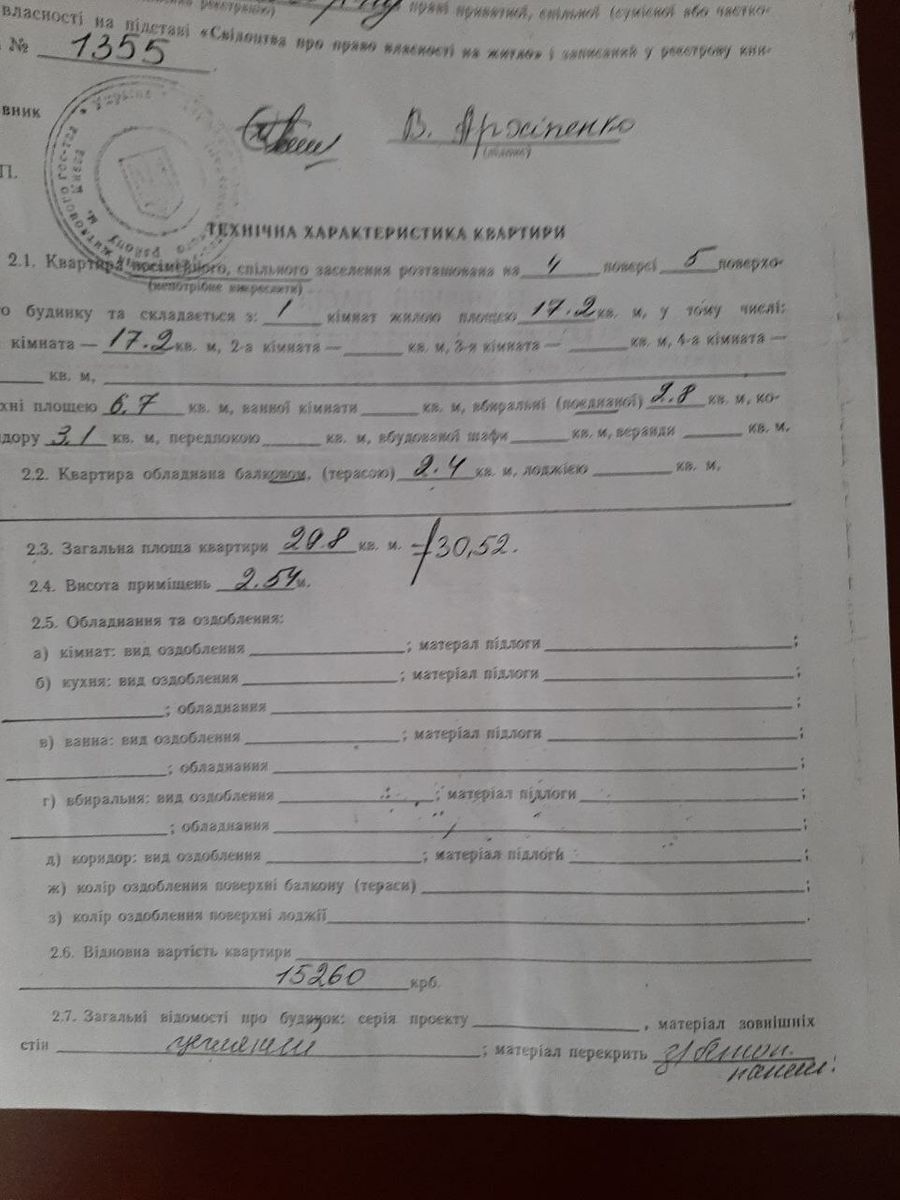 праві приватної, спільної (сумісної або частко-
власності на підставі «Свідоцтва про право власності на житло» і записаний у реєстрову кни-
№ 1355
вник В. Архіпенко
П.
ТЕХНІЧНА ХАРАКТЕРИСТИКА КВАРТИРИ
2.1. Квартира посімейного, спільного заселення розташована на 4 поверсі 5 поверхо-
(непотрібне викреслити)
го будинку та складається з: 1 кімнат жилою площею 17.2 кв. м, у тому числі:
кімната — 17.2 кв. м, 2-а кімната — кв. м, 3-я кімната — кв. м, 4-а кімната —
кв. м,
хні площею 6,7 кв. м, ванної кімнати кв. м, вбиральні (поєднаної) 2.8 кв. м, ко-
идору 3,1 кв. м, передпокою кв. м, вбудованої шафи кв. м, веранди кв. м.
2.2. Квартира обладнана балконом, (терасою) 2.4 кв. м, лоджією кв. м.
2.3. Загальна площа квартири 29.8 кв. м. 30,52.
2.4. Висота приміщень 2.54 м.
2.5. Обладнання та оздоблення:
а) кімнат: вид оздоблення ; матерал підлоги ;
б) кухня: вид оздоблення ; матеріал підлоги ;
; обладнання ;
в) ванна: вид оздоблення ; матеріал підлоги ;
; обладнання ;
г) вбиральня: вид оздоблення ; матеріал підлоги ;
; обладнання ;
д) коридор: вид оздоблення ; матеріал підлоги ;
ж) колір оздоблення поверхні балкону (тераси) ;
з) колір оздоблення поверхні лоджії .
2.6. Відновна вартість квартири
15260 крб.
2.7. Загальні відомості про будинок: серія проекту , матеріал зовнішніх
стін ; матеріал перекрить з/бетон.
панелі.